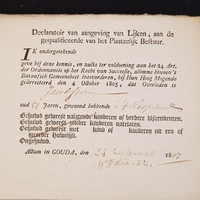 Declaratoir van aangeving van Lijken, aan de
gequalificeerde van het Plaatzelijk Bestuur.
IK ondergetekende
geve bij deze kennis, en zulks ter voldoening aan het 24 Art.
der Ordonnantie op het Recht van Successie, alömme binnen 't
Bataafsch Gemeenebest intevoorderen, bij Hun Hoog Mogende
geärresteerd den 4 October 1805, dat Overleden is
oud 51 Jaren, gewoond hebbende
Gehuwd geweest nalatende kinderen of verdere bijstervenden.
Gehuwd geweest zonder kinderen natelaten.
Gehuwd geweest met kind of kinderen uit een of
meerder Huwelijk.
Ongehuwd.
Actum in GOUDA, den 24 Maart 1807